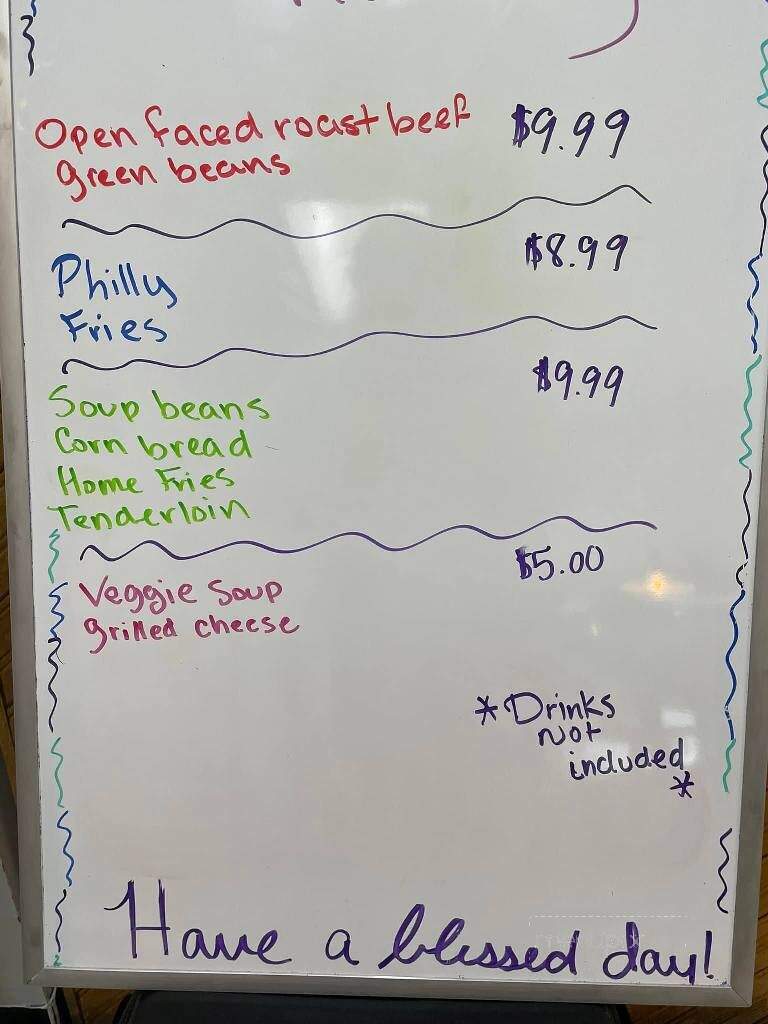 Open faced roast beef $9.99
green beans
Philly $8.99
Fries
Soup beans $9.99
Corn bread
Home Fries
Tenderloin
Veggie Soup $5.00
grilled cheese
*Drinks
Not
included
*
Have a blessed day!